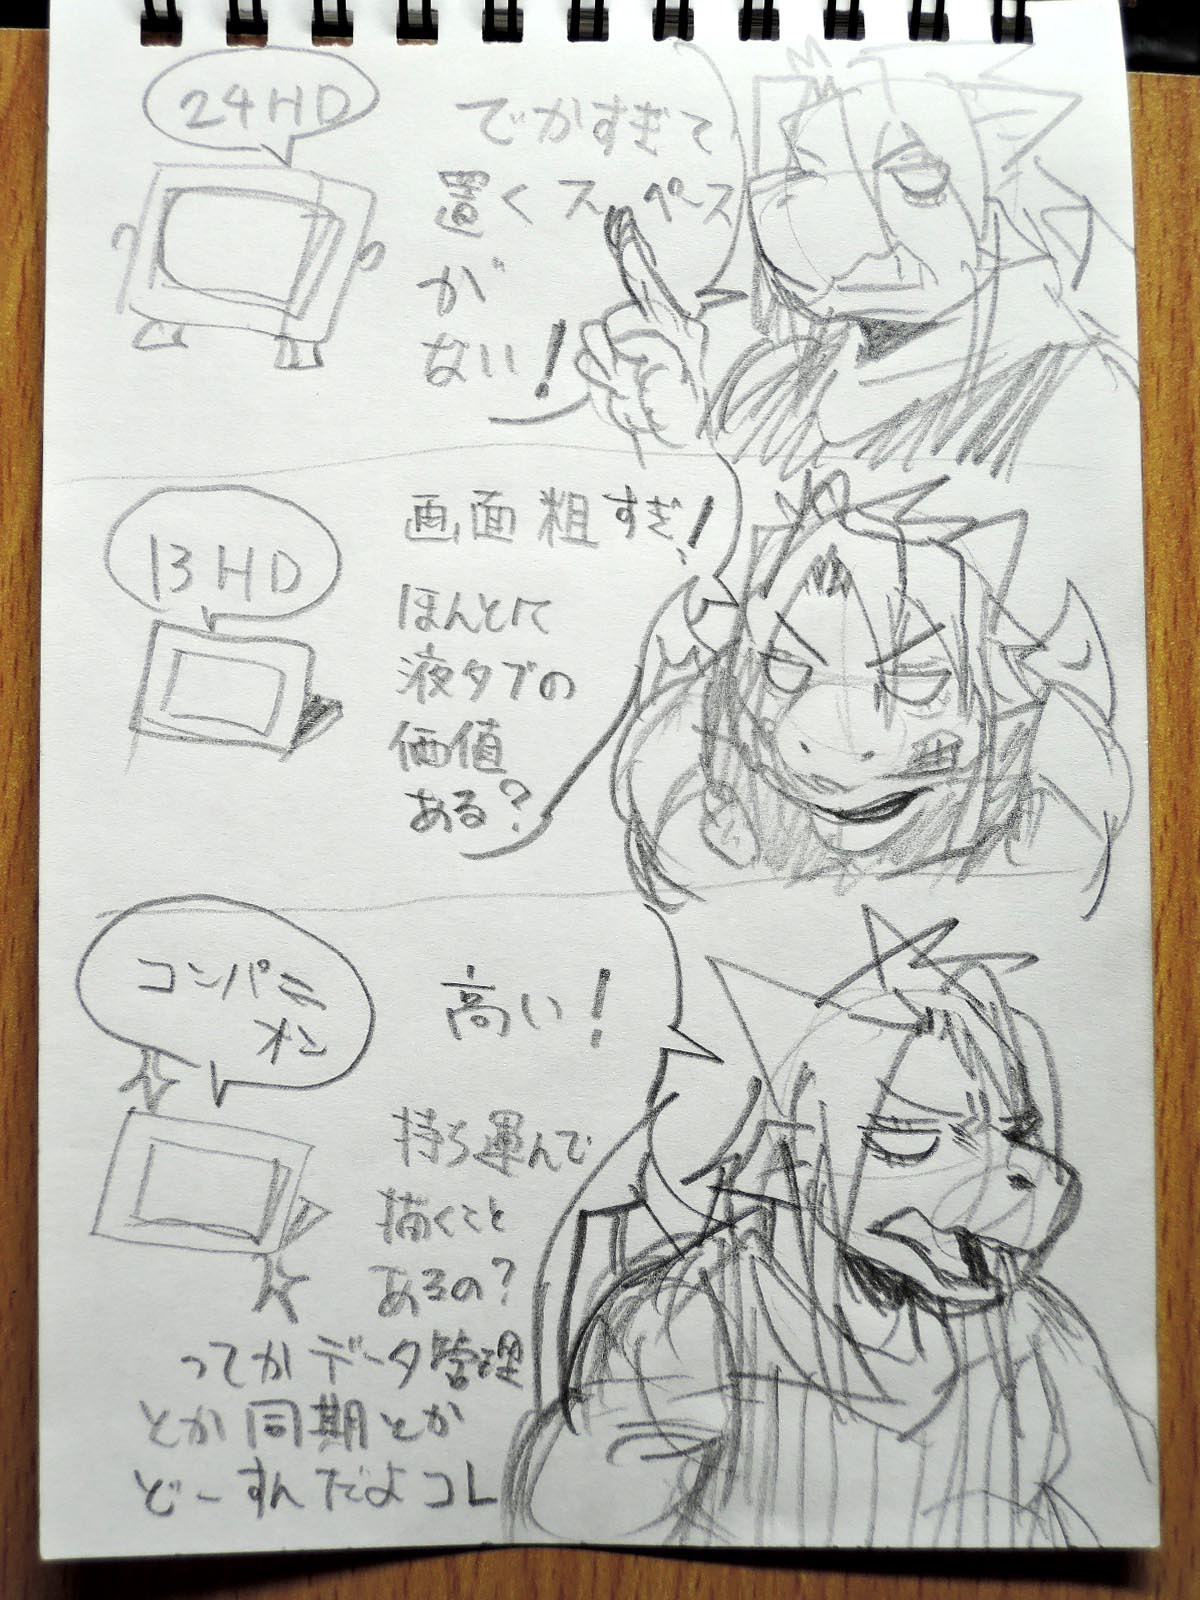 24HD
でかすぎて
置くスペース
が
ない!
13HD
画面粗すぎ!
ほんとに
液タブの
価値
ある?
コンパニ
オン
高い!
持ち運んで
描くこと
あるの?
ってかデータ管理
とか同期とか
どーすんだよコレ